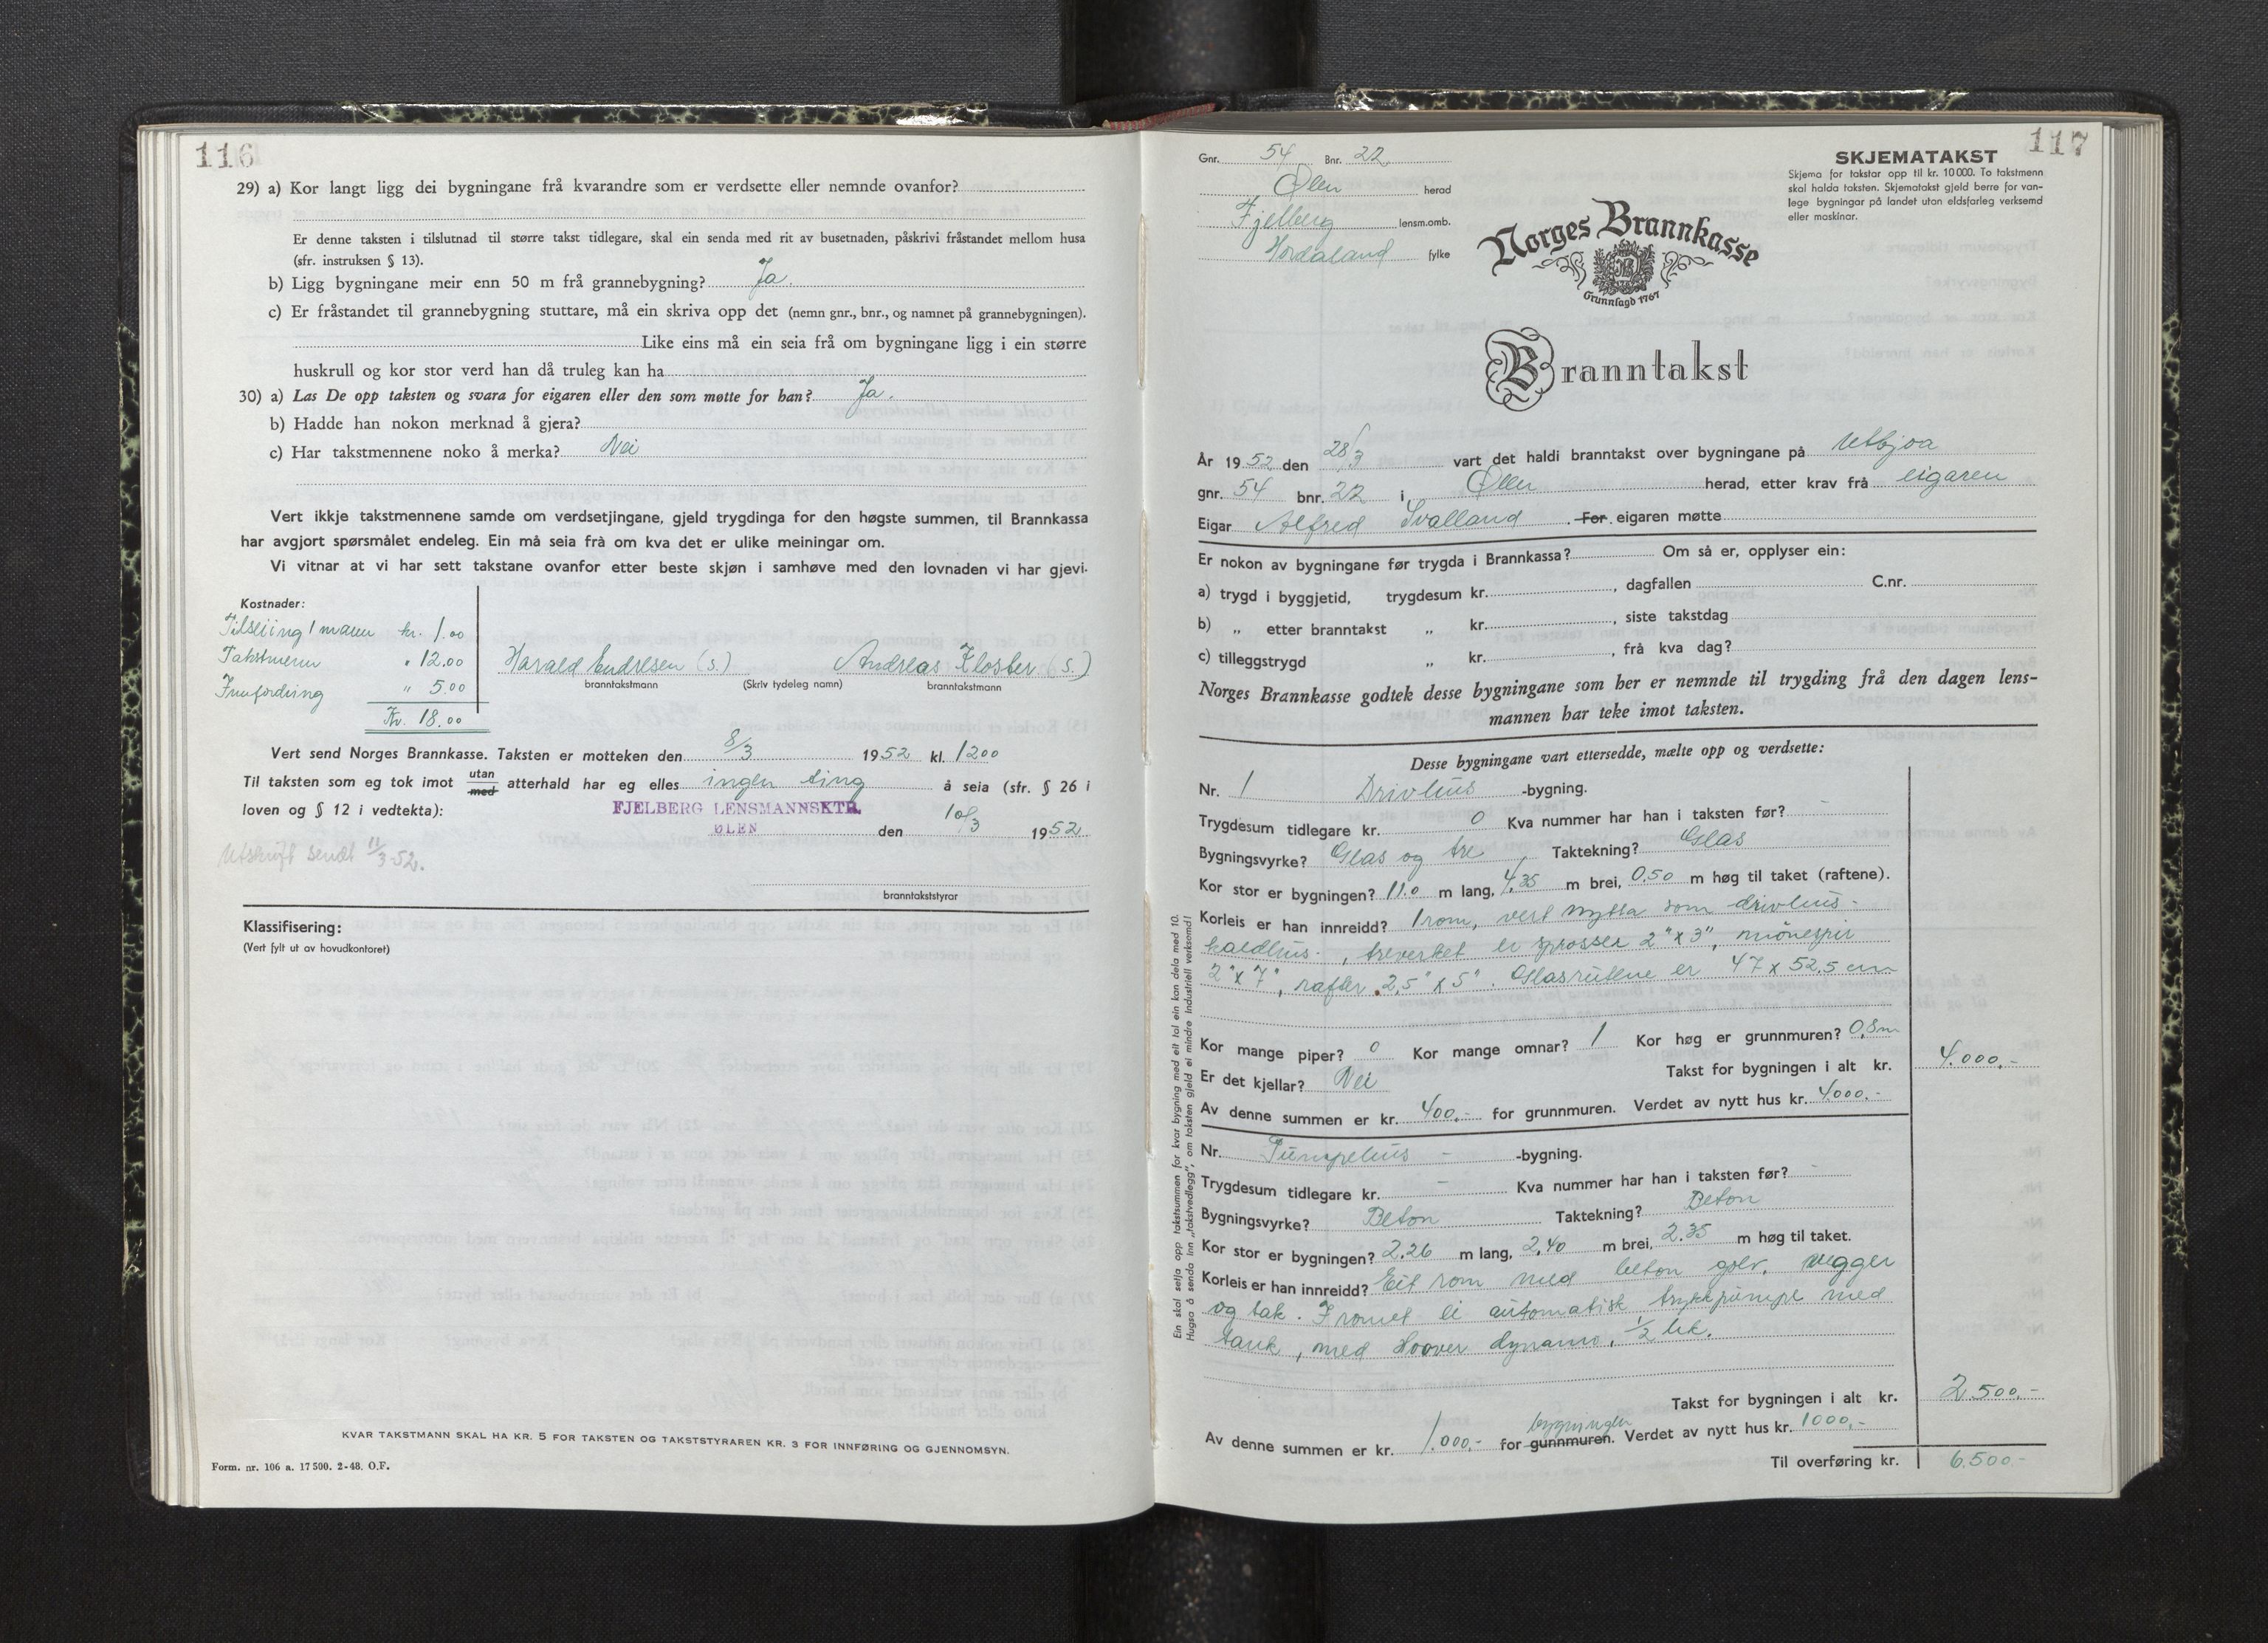 116
29) a) Kor langt ligg dei bygningane frå kvarandre som er verdsette eller nemnde ovanfor?
Er denne taksten i tilslutnad til større takst tidlegare, skal ein senda med rit av busetnaden, påskrivi fråstandet mellom husa
(sfr. instruksen § 13).
b) Ligg bygningane meir enn 50 m frå grannebygning? Ja.
c) Er fråstandet til grannebygning stuttare, må ein skriva opp det (nemn gnr., bnr., og namnet på grannebygningen).
Like eins må ein seia frå om bygningane ligg i ein større
huskrull og kor stor verd han då truleg kan ha
30) a) Las De opp taksten og svara for eigaren eller den som møtte for han? Ja.
b) Hadde han nokon merknad å gjera?
c) Har takstmennene noko å merka? Nei
Vert ikkje takstmennene samde om verdsetjingane, gjeld trygdinga for den høgste summen, til Brannkassa
har avgjort spørsmålet endeleg. Ein må seia frå om kva det er ulike meiningar om.
Vi vitnar at vi har sett takstane ovanfor etter beste skjøn i samhøve med den lovnaden vi har gjevi.
Kostnader:
Tilseiing 1 mann kr. 1.00
Takstmenn " 12.00
Innføring " 5.00
Kr. 18.00
Harald Endresen (s.) Andreas Kloster (s.)
branntakstmann (Skriv tydeleg namn) branntakstmann
Vert send Norges Brannkasse. Taksten er motteken den 8/3 1952 kl. 1200
Til taksten som eg tok imot utan med atterhald har eg elles ingen ting å seia (sfr. § 26 i
loven og § 12 i vedtekta):
FJELBERG LENSMANNSKTR.
ØLEN den 10/3 1952
Utskrift sendt 11/3-52.
branntakststyrar
Klassifisering:
(Vert fylt ut av hovudkontoret)
KVAR TAKSTMANN SKAL HA KR. 5 FOR TAKSTEN OG TAKSTSTYRAREN KR. 3 FOR INNFØRING OG GJENNOMSYN.
Form. nr. 106 a. 17 500. 2-48. O.F.
117
Gnr. 54 Bnr. 22.
Ølen herad
Fjelberg lensm.omb.
Hordaland fylke
SKJEMATAKST
Skjema for takstar opp til kr. 10 000. To takstmenn
skal halda taksten. Skjematakst gjeld berre for van-
lege bygningar på landet utan eldsfarleg verksemd
eller maskinar.
Norges Brannkasse
Grunnlagd 1767
Branntakst
År 1952 den 28/3 vart det haldi branntakst over bygningane på Utbjoa
gnr. 54 bnr. 22 i Ølen herad, etter krav frå eigaren
Eigar Alfred Svalland . For eigaren møtte
Er nokon av bygningane før trygda i Brannkassa? Om så er, opplyser ein:
a) trygd i byggjetid, trygdesum kr. , dagfallen C.nr.
b) „ etter branntakst „ kr. , siste takstdag
c) tilleggstrygd „ kr. , frå kva dag?
Norges Brannkasse godtek desse bygningane som her er nemnde til trygding frå den dagen lens-
mannen har teke imot taksten.
Desse bygningane vart ettersedde, mælte opp og verdsette:
Nr. 1 Drivhus -bygning.
Trygdesum tidlegare kr. 0 Kva nummer har han i taksten før? -
Bygningsvyrke? Glas og tre Taktekning? Glas
Kor stor er bygningen? 11.0 m lang, 4,35 m brei, 0,50 m høg til taket (raftene).
Korleis er han innreidd? 1 rom, vert nytta som drivhus -
kaldhus - , treverket er sprosser 2" x 3", mønespir
2" x 7", rafter 2,5" x 5". Glasrutene er 47 x 52,5 cm
Kor mange piper? 0 Kor mange omnar? 1 Kor høg er grunnmuren? 0,8 m
Er det kjellar? Nei Takst for bygningen i alt kr. 4.000.-
Av denne summen er kr. 400.- for grunnmuren. Verdet av nytt hus kr. 4000.-
Nr. Pumpehus - -bygning.
Trygdesum tidlegare kr. - Kva nummer har han i taksten før? -
Bygningsvyrke? Beton Taktekning? Beton
Kor stor er bygningen? 2.26 m lang, 2,40 m brei, 2.35 m høg til taket.
Korleis er han innreidd? Eit rom med beton golv, vegger
og tak. I romet ei automatisk trykkpumpe med
tank, med Hoover dynamo, 1/2 hk.
Takst for bygningen i alt kr. 2.500.-
bygningen
Av denne summen er kr. 1.000.- for gunnmuren. Verdet av nytt hus kr. 1000.-
Til overføring kr. 6.500.-
Ein skal setja opp takstsummen for kvar bygning med eit tal ein kan dela med 10.
Hugsa å senda inn „takstvedlegg", om taksten gjeld ei mindre industriell verksemd!